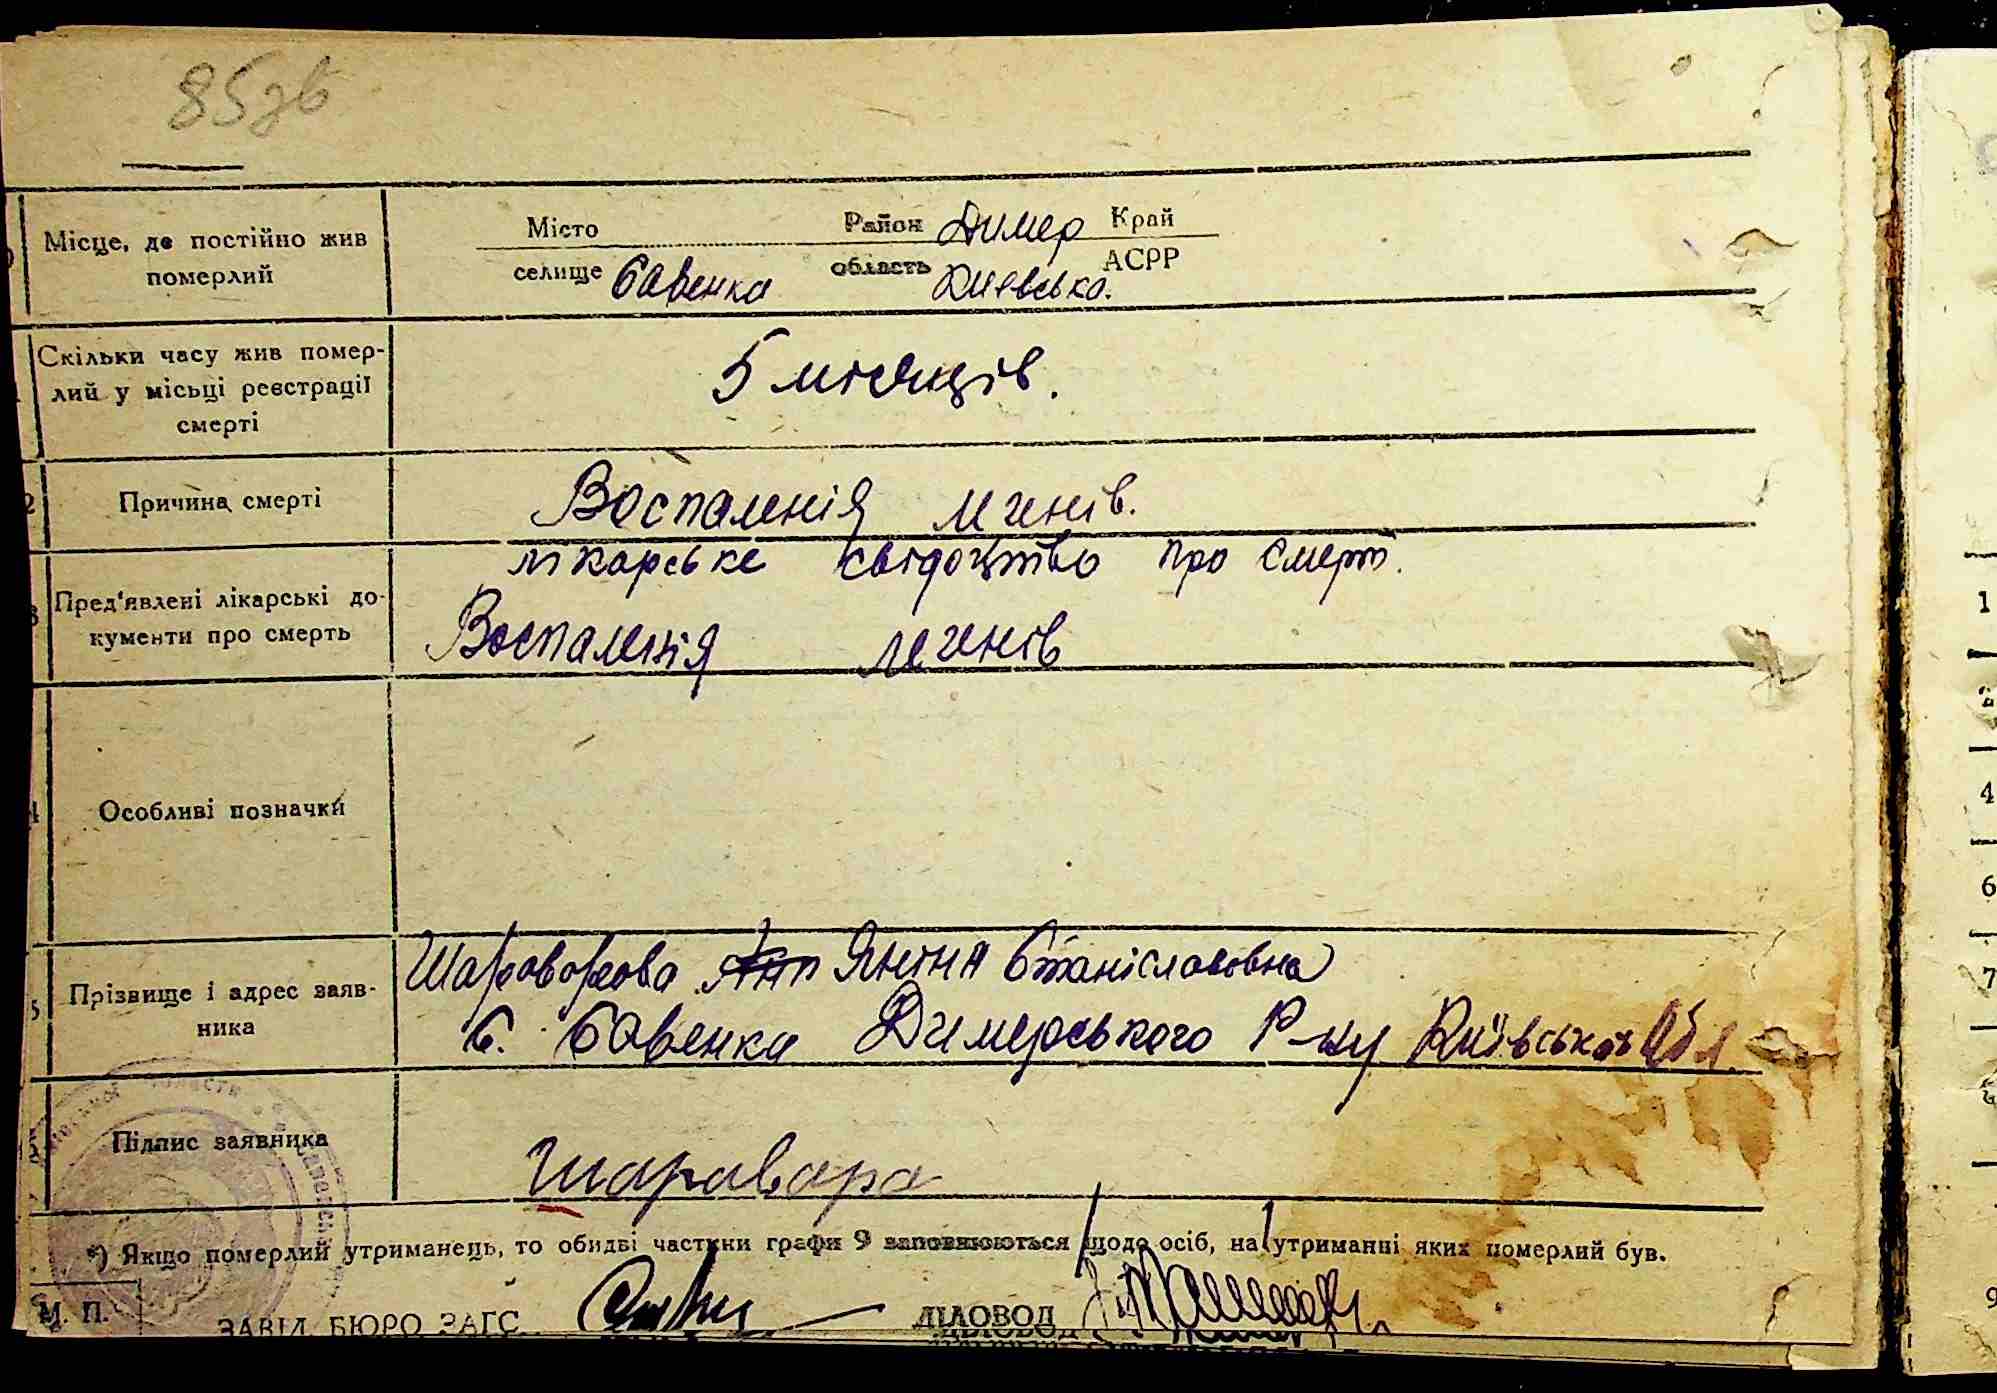 85зв
Місце, де постійно жив
померлий
Місто Район Димер Край
селище Савенка область Киевська. АСРР
Скільки часу жив помер-
лий у місьці реєстрації
смерті
5 місяців.
Причина смерті
Воспаленія легенів.
Пред'явлені лікарські до-
кументи про смерть
лікарське свідоцтво про смерт.
Воспаленія легенів
Особливі позначки
Прізвище і адрес заяв-
ника
Шароварова Яніна Станіславовна
С. Савенка Димерського Р-ну Київської Обл.
Підпис заявника
Шаравара
*) Якщо померлий утриманець, то обидві частини графи 9 заповнюються щодо осіб, на утриманні яких померлий був.
М. П.
ЗАВІД. БЮРО ЗАГС
ДІЛОВОД